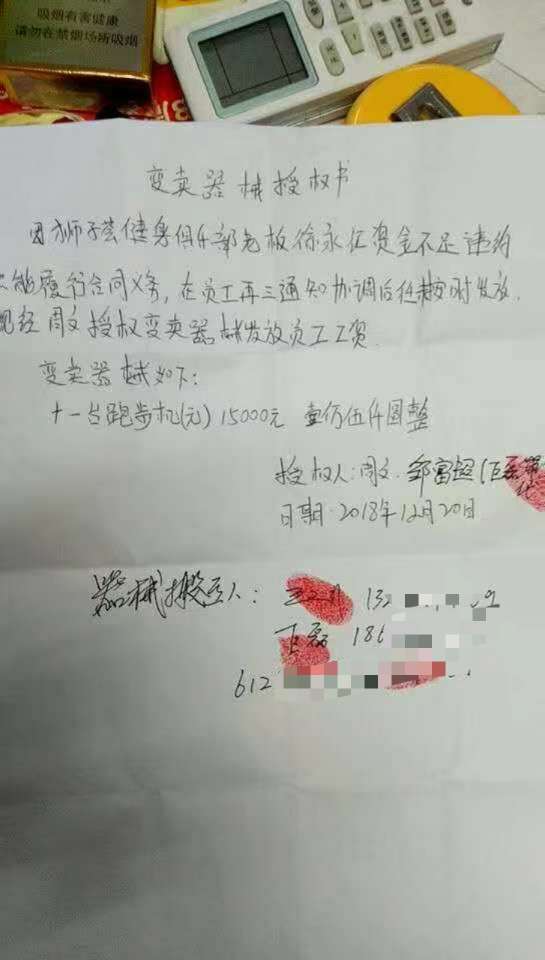 吸烟有害健康
请勿在禁烟场所吸烟
变卖器械授权书
因狮子荟健身俱乐部老板徐永征资金不足违约
不能履行合同义务,在员工再三通知协调后仍未按时发放.
现经周文授权变卖器械发放员工工资
变卖器械如下:
十一台跑步机(元) 15000元 壹仟伍仟圆整
授权人:周文. 邹富超
日期:2018年12月20日
器械搬运人: 132
磊 186
612